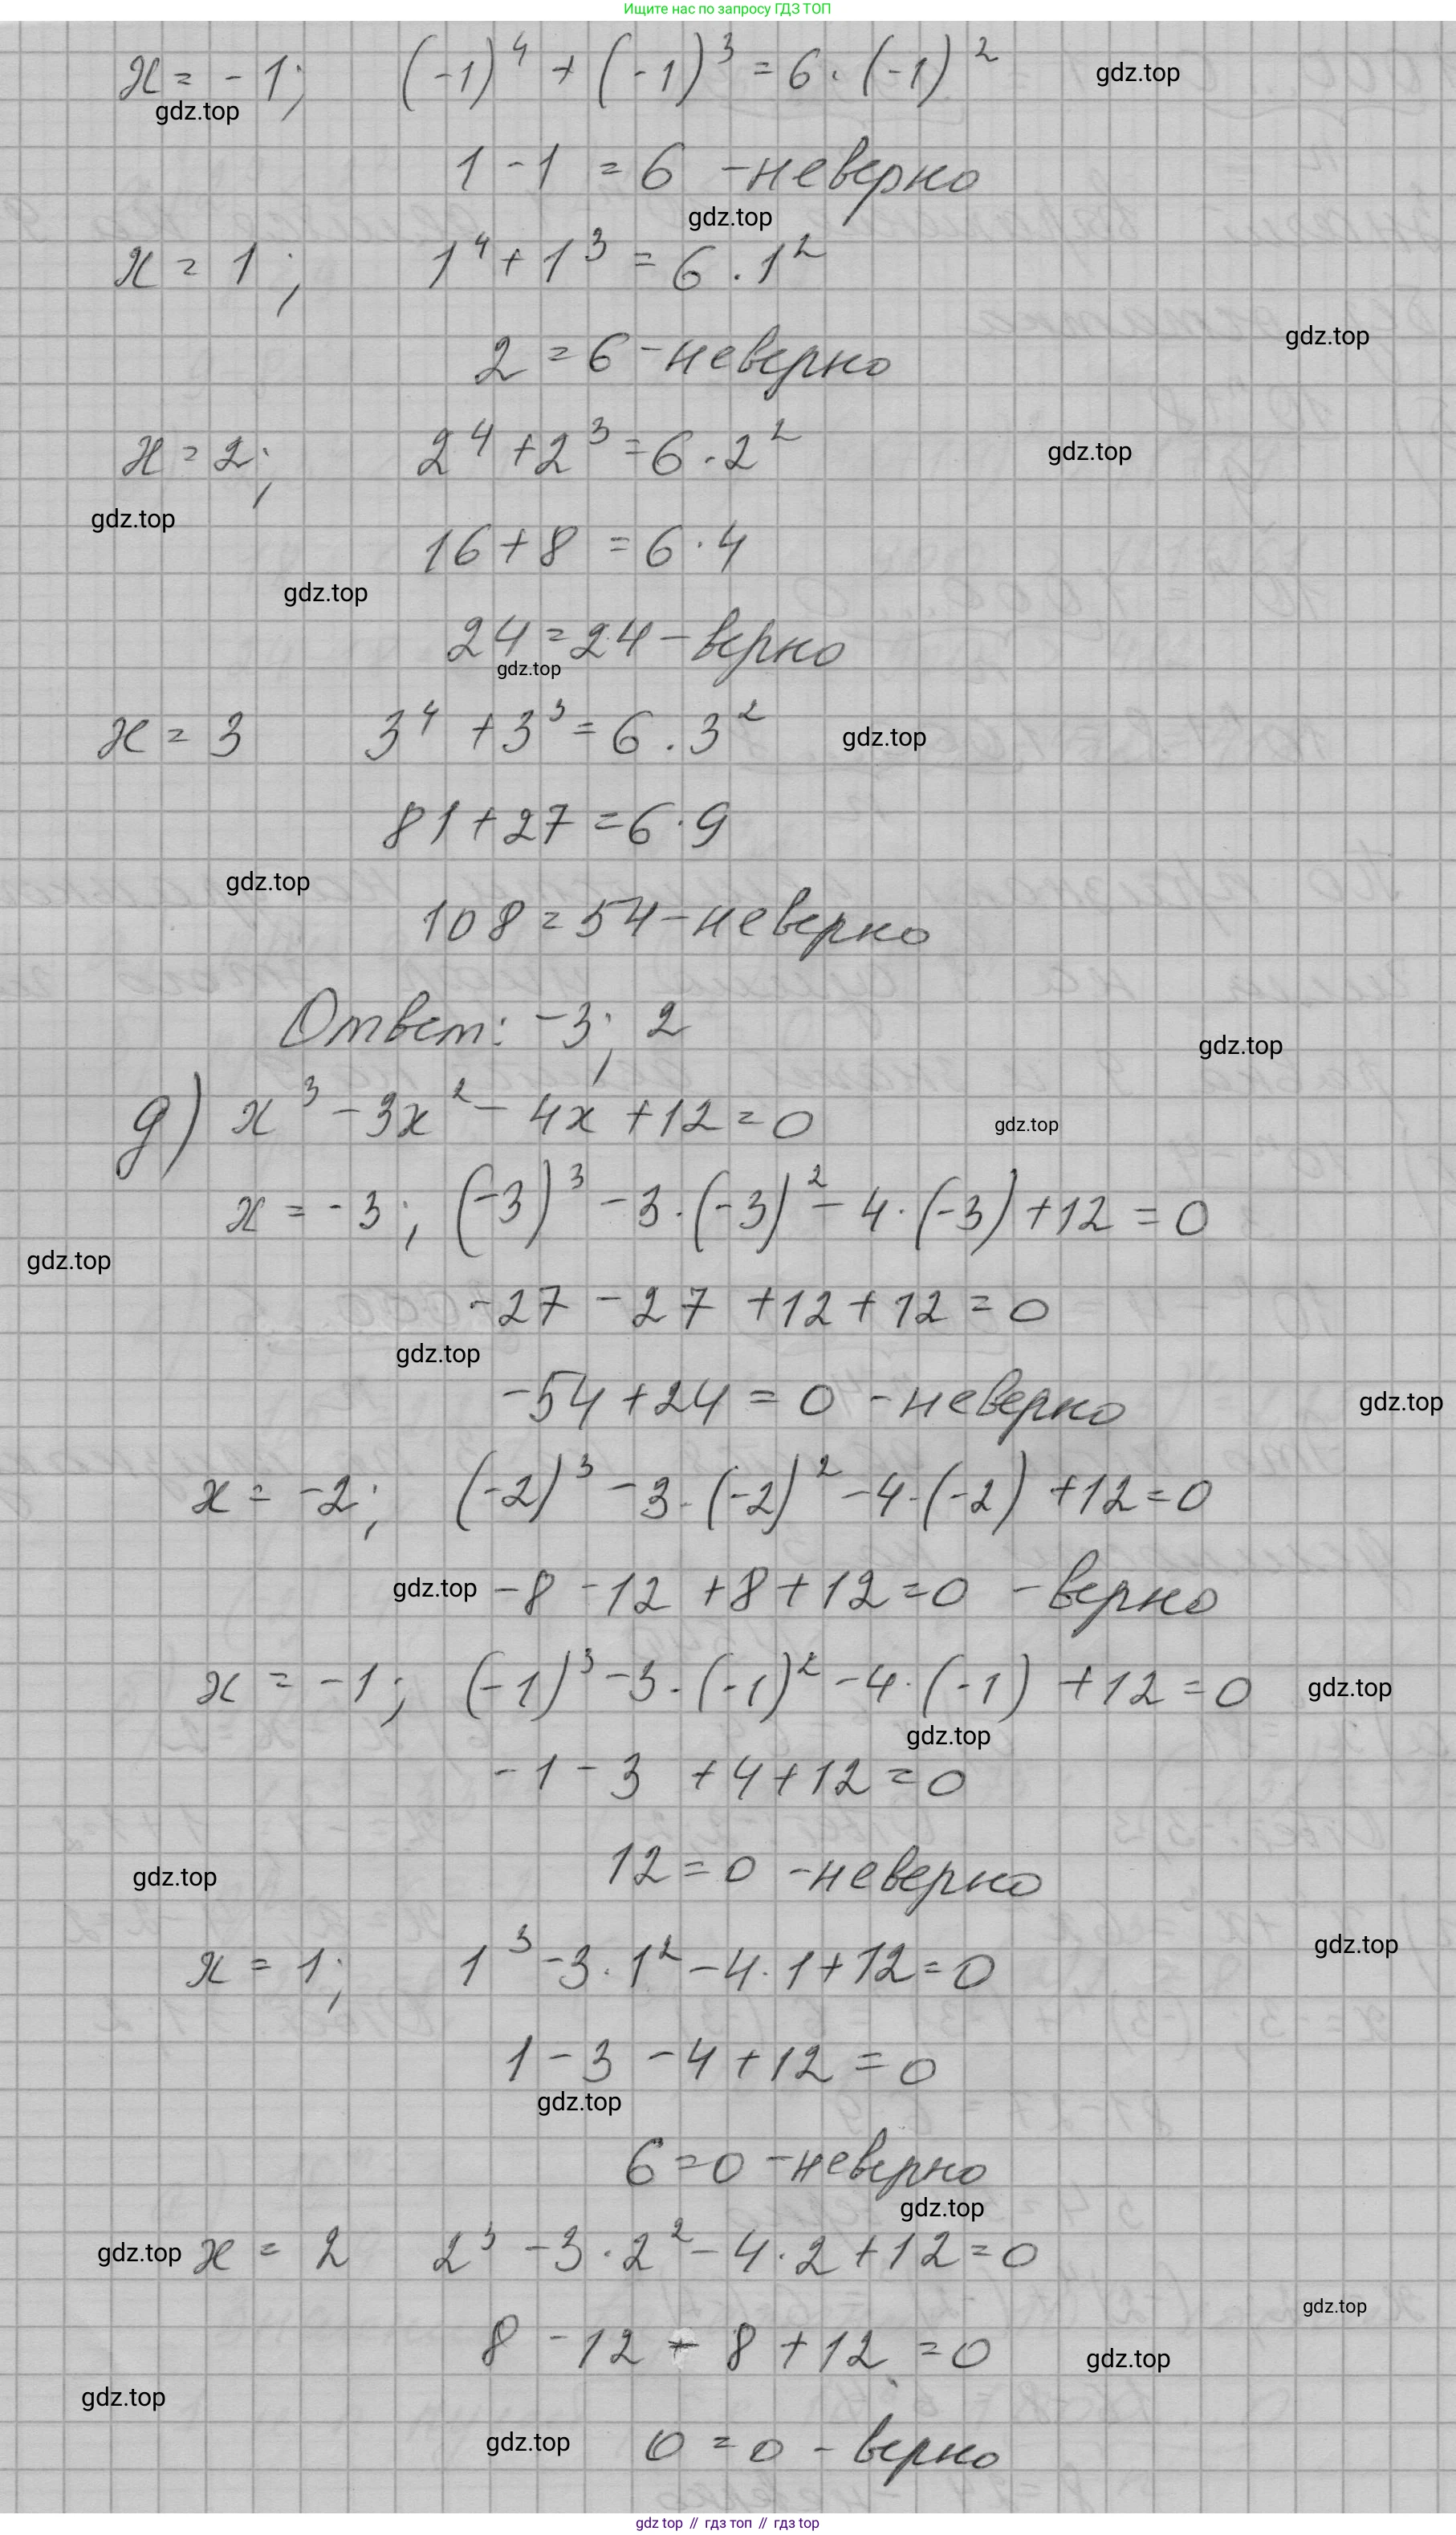 Ищите нас по запросу ГДЗ ТОП
x = -1; (-1)⁴ + (-1)³ = 6 · (-1)² gdz.top
gdz.top
1 - 1 = 6 - неверно
gdz.top
x = 1; 1⁴ + 1³ = 6 · 1²
gdz.top
2 = 6 - неверно
x = 2; 2⁴ + 2³ = 6 · 2² gdz.top
gdz.top
16 + 8 = 6 · 4
gdz.top
24 = 24 - верно
gdz.top
x = 3 3⁴ + 3³ = 6 · 3² gdz.top
81 + 27 = 6 · 9
gdz.top
108 = 54 - неверно
Ответ: -3; 2
gdz.top
д) x³ - 3x² - 4x + 12 = 0 gdz.top
x = -3; (-3)³ - 3 · (-3)² - 4 · (-3) + 12 = 0
gdz.top
-27 - 27 + 12 + 12 = 0
gdz.top
-54 + 24 = 0 - неверно gdz.top
x = -2; (-2)³ - 3 · (-2)² - 4 · (-2) + 12 = 0
gdz.top -8 - 12 + 8 + 12 = 0 - верно
x = -1; (-1)³ - 3 · (-1)² - 4 · (-1) + 12 = 0 gdz.top
gdz.top
-1 - 3 + 4 + 12 = 0
12 = 0 - неверно
gdz.top
gdz.top
x = 1; 1³ - 3 · 1² - 4 · 1 + 12 = 0
1 - 3 - 4 + 12 = 0
gdz.top
6 = 0 - неверно
gdz.top
gdz.top x = 2 2³ - 3 · 2² - 4 · 2 + 12 = 0
gdz.top
8 - 12 - 8 + 12 = 0 gdz.top
gdz.top
gdz.top 0 = 0 - верно
gdz top // гдз топ // gdz top